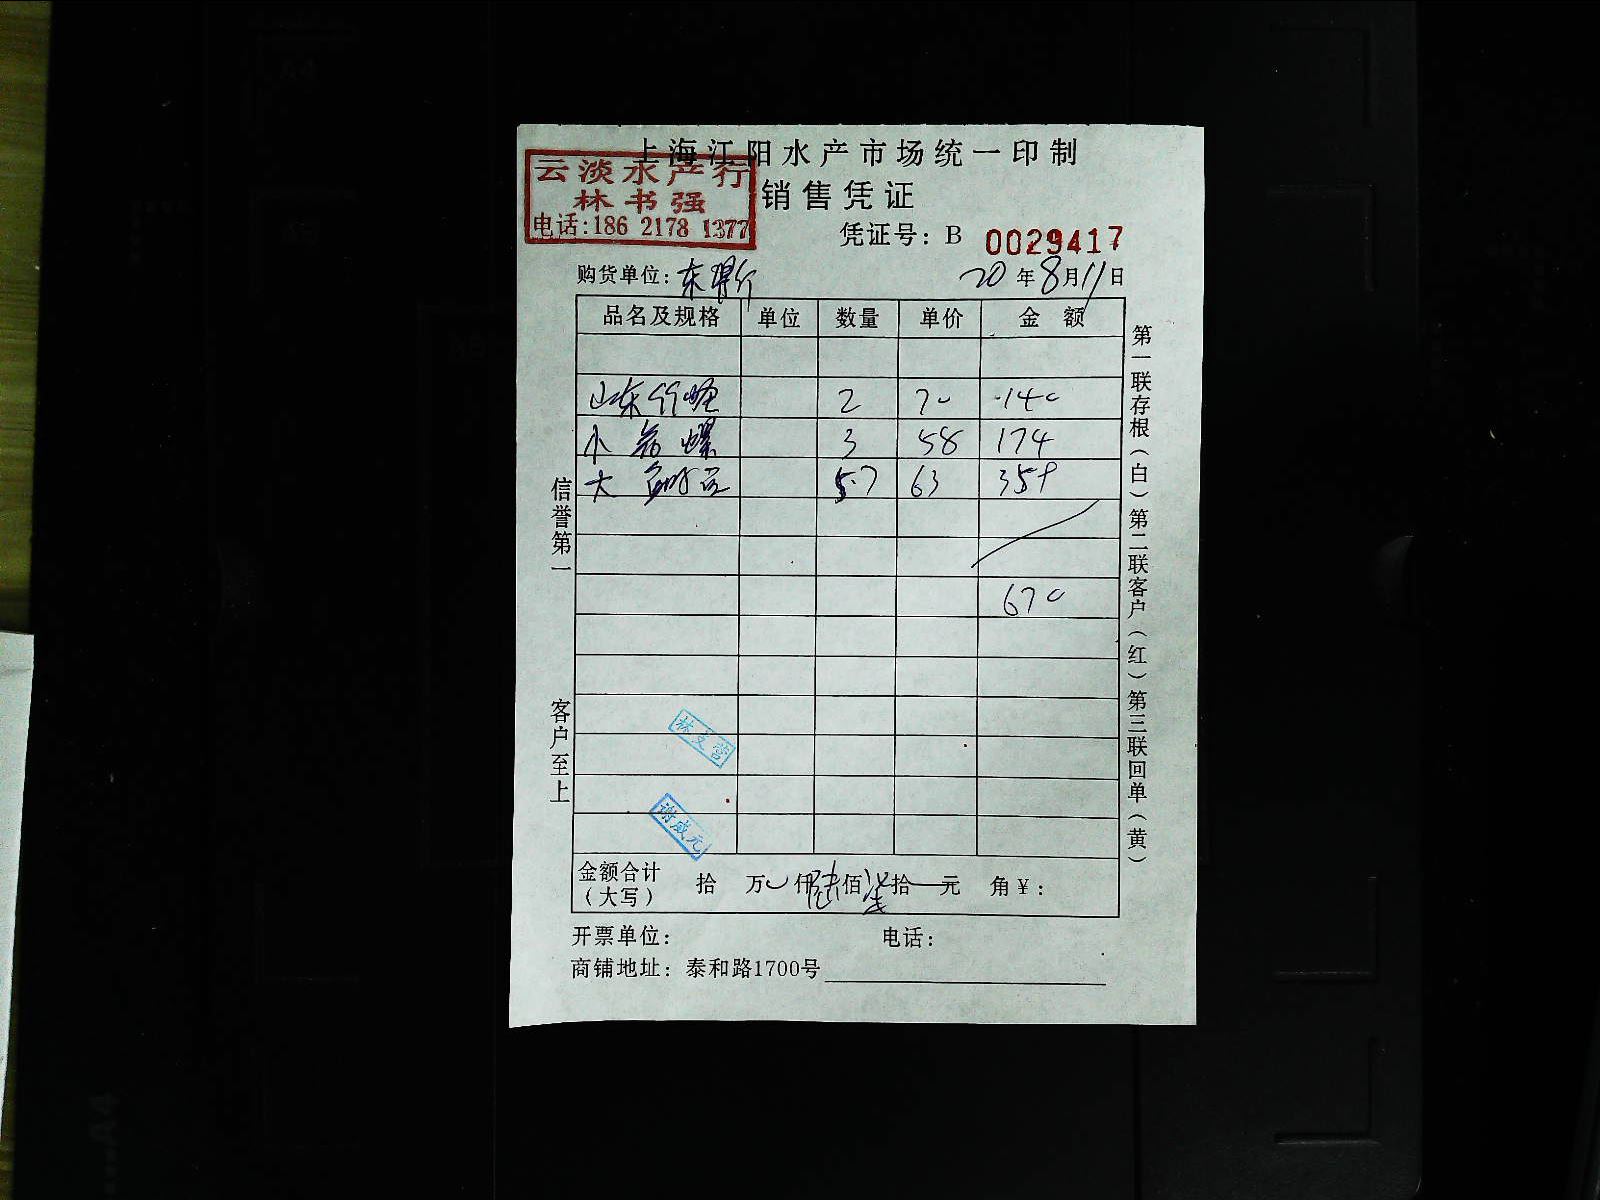 上海江阳水产市场统一印制
云淡水产行
林书强
电话:186 2178 1377
销售凭证
凭证号: B 0029417
购货单位: 东 20年8月11日
品名及规格 单位 数量 单价 金额
山东竹蛏 2 70 140
小 螺 3 58 174
大 5.7 63 359
670
林文营
谢成元
金额合计(大写) 拾 万 仟陆佰柒拾 元 角¥:
开票单位: 电话:
商铺地址: 泰和路1700号
信誉第一
客户至上
第一联存根(白)第二联客户(红)第三联回单(黄)